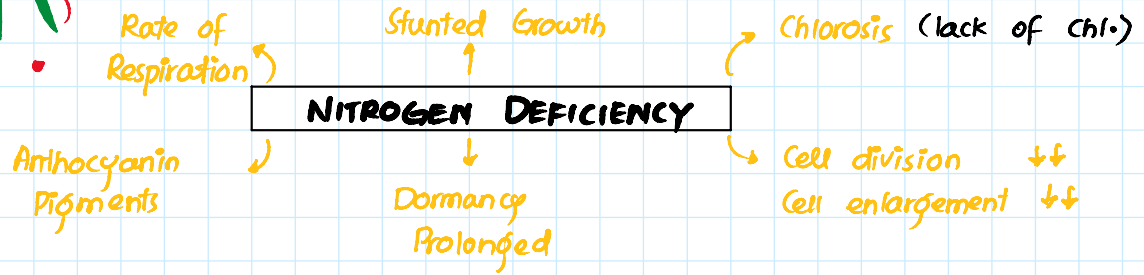 Rate of
Respiration
Stunted Growth
Chlorosis (lack of chl.)
NITROGEN DEFICIENCY
Anthocyanin
Pigments
Dormancy
Prolonged
Cell division ↓↓
Cell enlargement ↓↓